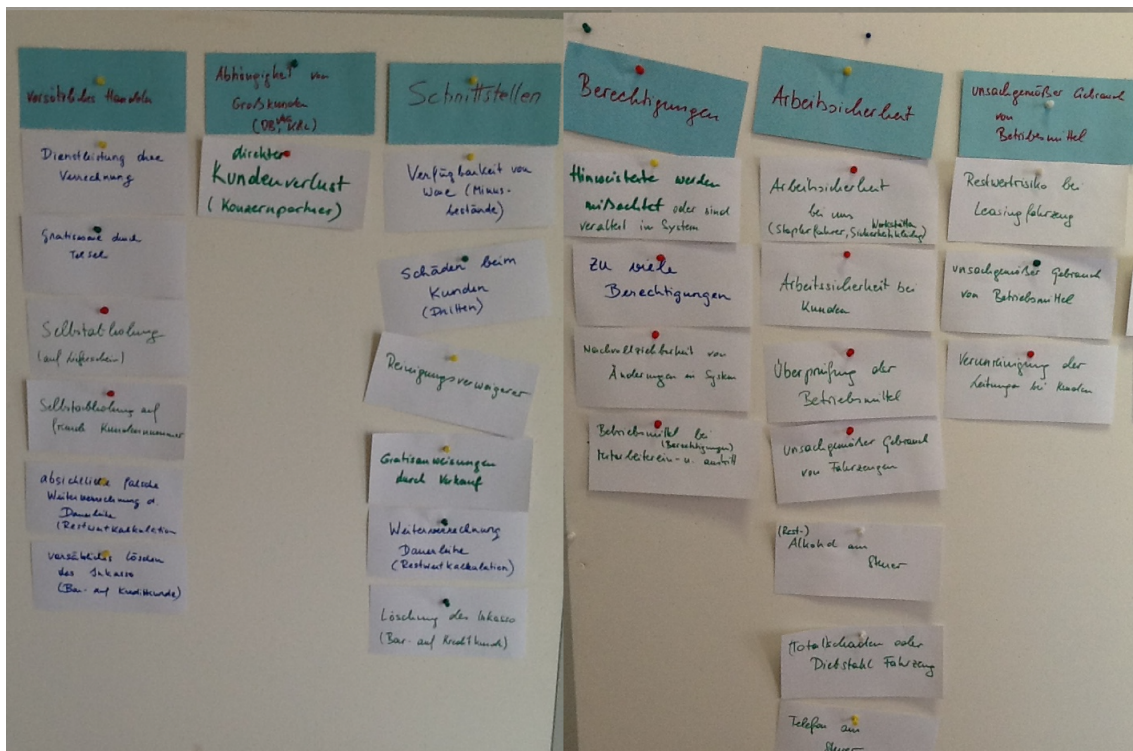 vorsätzliches Handeln
Dienstleistung ohne
Verrechnung
Gratisware durch
Selbstabholung
(auf Lieferschein)
Selbstabholung auf
fremde Kundennummer
absichtliche falsche
Weiterverrechnung d.
Dauerleihe
(Restwertkalkulation
vorsätzliches Löschen
des Inkasso
(Bar- auf Kreditkunde)
Abhängigkeit von
Großkunden
(DB,
direkter
Kundenverlust
(Konzernpartner)
Schnittstellen
Verfügbarkeit von
Ware (Minus-
bestände)
Schäden beim
Kunden
(Dritten)
Reinigungsverweigerer
Gratisanweisungen
durch Verkauf
Weiterverrechnung
Dauerleihe
(Restwertkalkulation)
Löschung des Inkasso
(Bar- auf Kreditkunde)
Berechtigungen
Hinweistexte werden
mißachtet oder sind
veraltet im System
Zu viele
Berechtigungen
Nachvollziehbarkeit von
Änderungen im System
Betriebsmittel bei
(Berechtigungen)
Mitarbeiterein- u. austritt
Arbeitssicherheit
Arbeitssicherheit
bei uns Werkstätte,
(Staplerfahrer, Sicherheitskleidung)
Arbeitssicherheit bei
Kunden
Überprüfung der
Betriebsmittel
unsachgemäßer Gebrauch
von Fahrzeugen
(Rest-)
Alkohol am
Steuer
(Totalschaden oder
Diebstahl Fahrzeug
Telefon am
Steuer
unsachgemäßer Gebrauch
von
Betriebsmittel
Restwertrisiko bei
Leasingfahrzeug
unsachgemäßer Gebrauch
von Betriebsmittel
Verunreinigung der
Leitungen bei Kunden